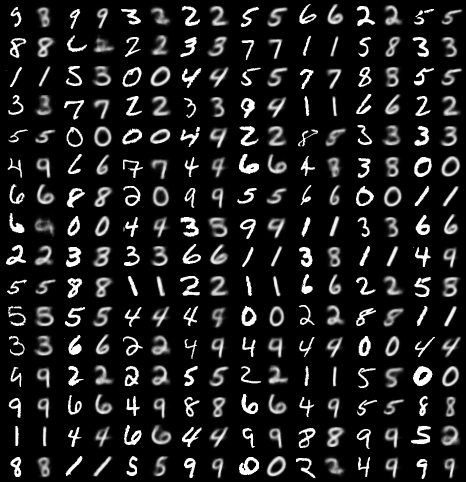 9 8 9 9 3 2 2 2 5 5 6 6 2 2 5 5
8 8 6 2 2 2 3 3 7 7 1 1 5 8 3 3
1 1 5 3 0 0 4 4 5 5 7 7 8 8 5 5
3 3 7 7 2 2 3 3 9 9 1 1 6 6 2 2
5 5 0 0 0 0 4 9 2 2 8 8 3 3 3 3
4 9 6 6 7 7 4 4 6 6 4 8 3 8 0 0
6 6 8 8 2 0 9 9 5 5 6 6 0 0 1 1
6 9 0 0 4 4 3 5 9 9 1 1 3 3 6 6
2 2 3 8 3 3 6 6 1 1 3 8 1 1 4 9
5 5 8 8 1 1 2 2 1 1 6 6 2 2 5 5
5 5 5 5 4 4 4 9 0 0 2 2 8 8 1 1
3 3 6 6 2 2 4 9 4 9 4 9 0 0 4 4
9 9 2 2 2 2 5 5 2 2 1 1 5 5 0 0
9 9 6 6 4 9 8 8 6 6 4 9 5 5 8 8
1 1 4 4 6 6 4 4 9 9 8 8 9 9 5 2
8 8 1 1 5 5 9 9 0 0 2 2 4 9 9 9